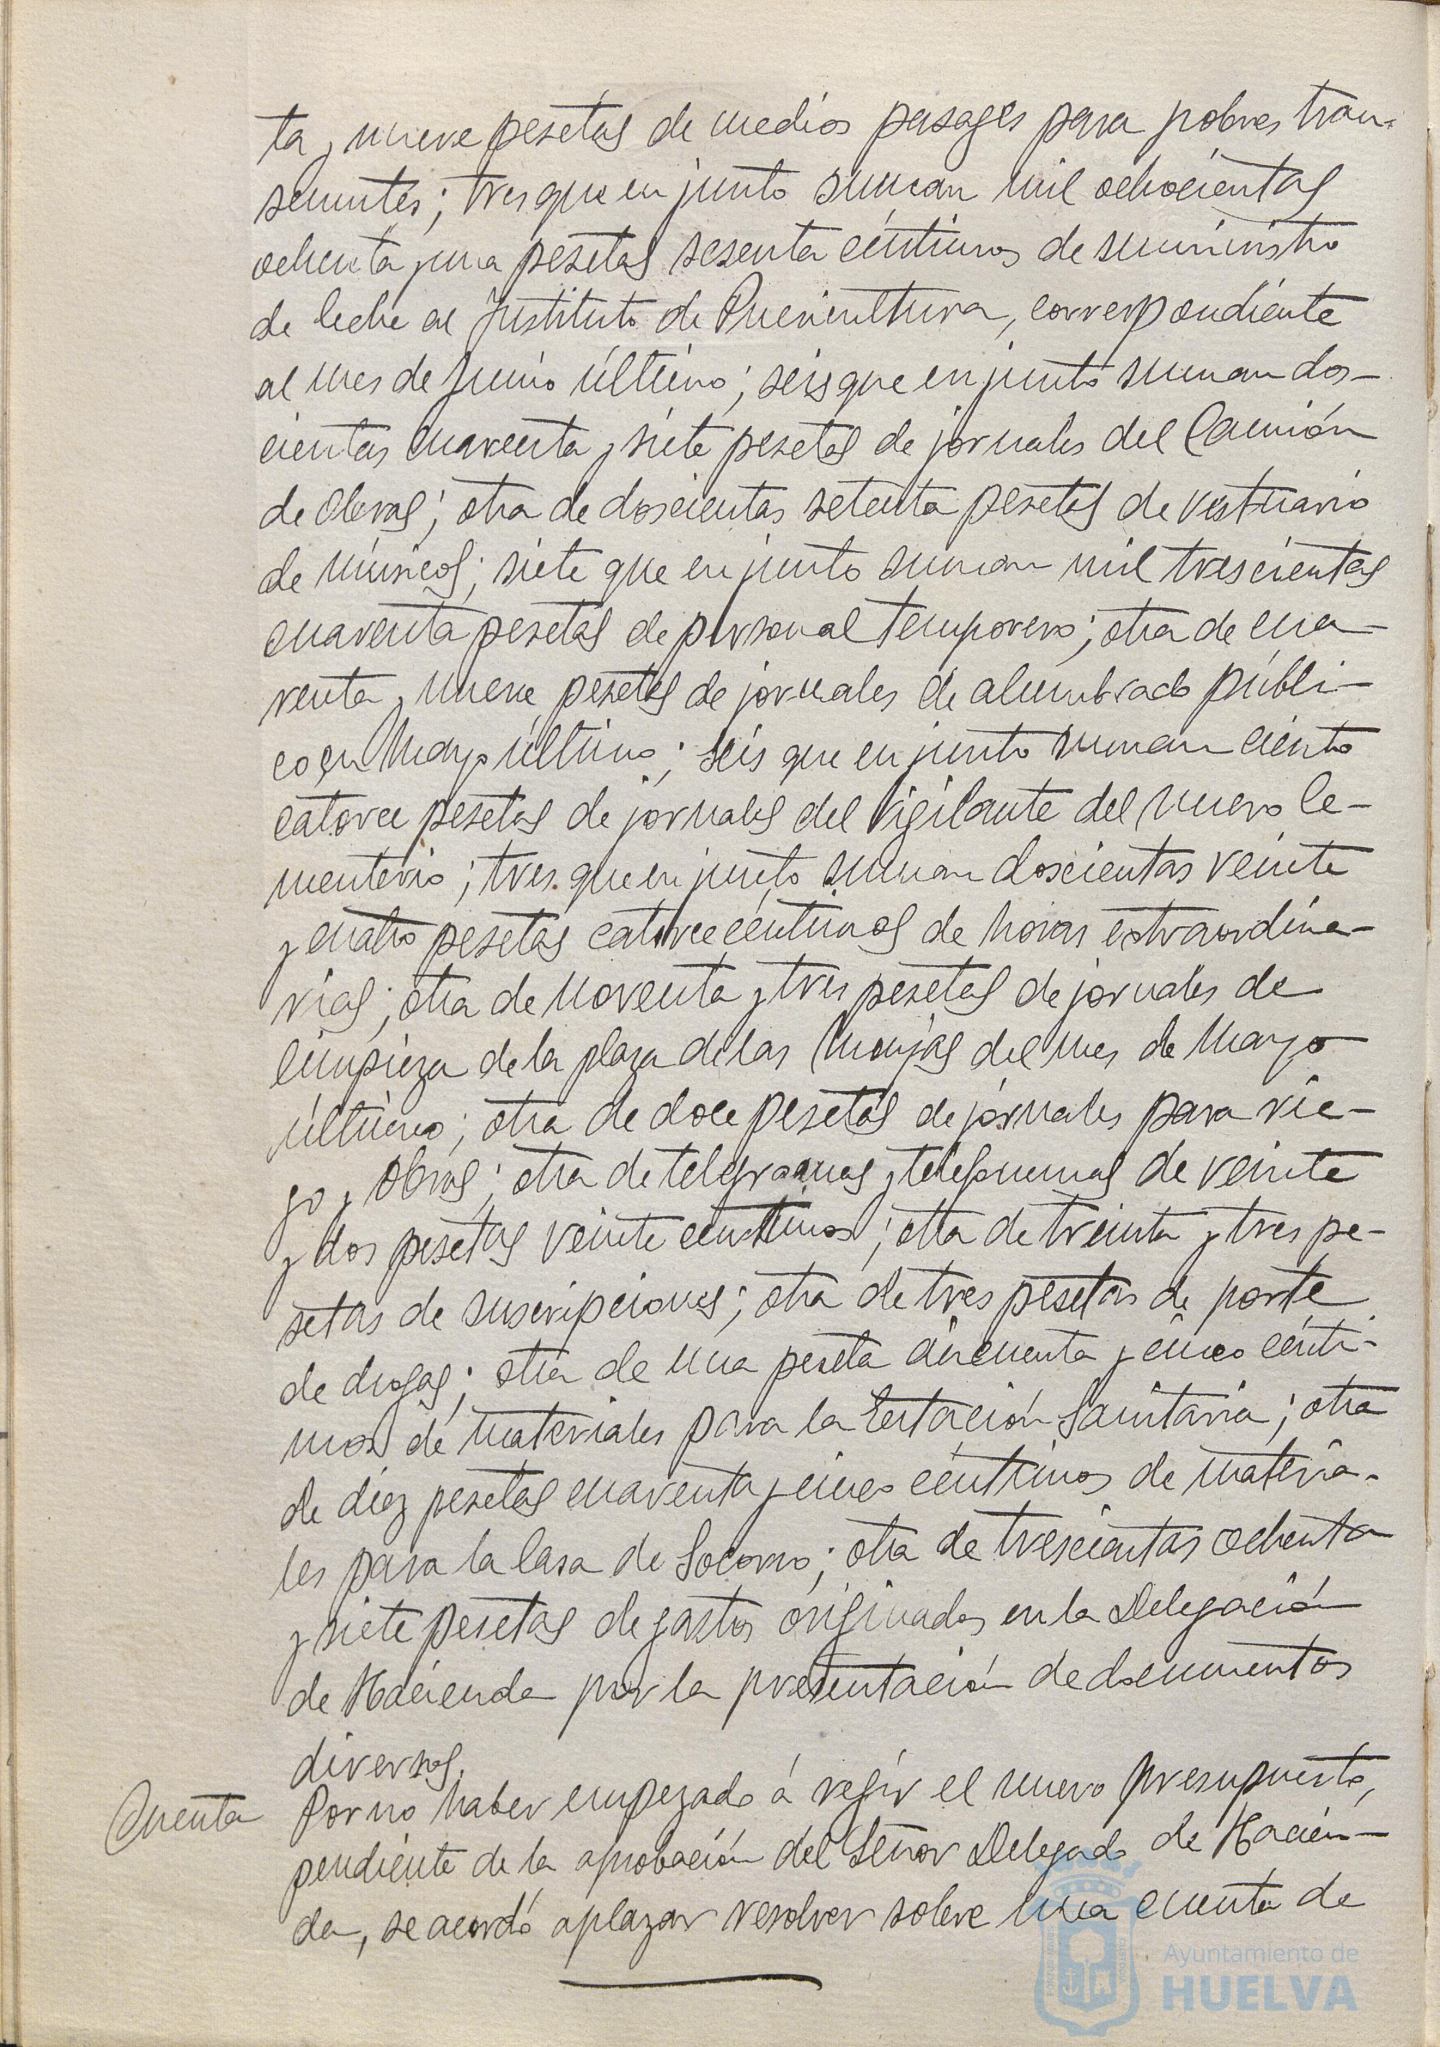 ta y nueve pesetas de medios pasages para pobres tran-
seuntes; tres que en junto suman mil ochocientas
ochenta y una pesetas sesenta céntimos de suministro
de leche al Instituto de Puericultura, correspondiente
al mes de Junio último; seis que en junto suman dos-
cientas cuarenta y siete pesetas de jornales del Camión
de Obras; otra de doscientas setenta pesetas de vestuario
de músicos; siete que en junto suman mil trescientas
cuarenta pesetas de personal temporero; otra de cua-
renta y nueve pesetas de jornales de alumbrado públi-
co en Mayo último; seis que en junto suman ciento
catorce pesetas de jornales del Vigilante del nuevo Ce-
menterio; tres que en junto suman doscientas veinte
y cuatro pesetas catorce céntimos de horas extraordina-
rias; otra de noventa y tres pesetas de jornales de
limpieza de la plaza de las Monjas del mes de Mayo
último; otra de doce pesetas de jornales para rie-
go y obras; otra de telegramas y telefonemas de veinte
y dos pesetas veinte céntimos; otra de treinta y tres pe-
setas de suscripciones; otra de tres pesetas de porte
de drogas; otra de una peseta cincuenta y cinco cénti-
mos de materiales para la Estación Sanitaria; otra
de diez pesetas cuarenta y cinco céntimos de materia-
les para la Casa de Socorro; otra de trescientas ochenta
y siete pesetas de gastos originados en la Delegación
de Hacienda por la presentación de documentos
diversos.
Cuenta Por no haber empezado á regir el nuevo presupuesto,
pendiente de la aprobación del Señor Delegado de Hacien-
da, se acordó aplazar resolver sobre una cuenta de
Ayuntamiento de
HUELVA